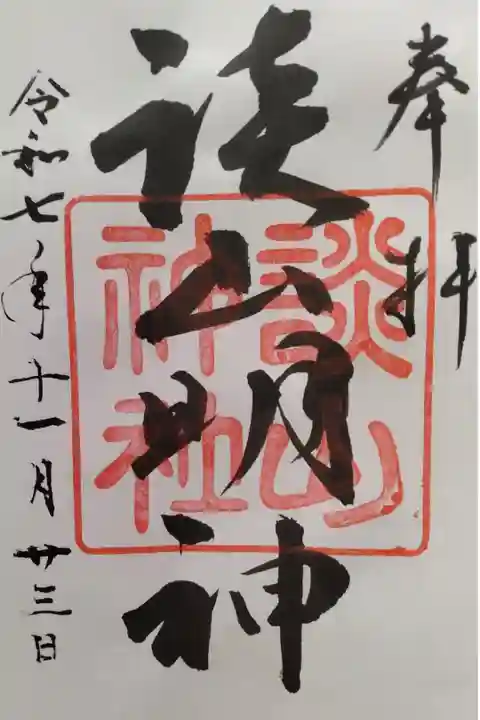 奉拝
談山明神
談山神社
令和七年十一月廿三日